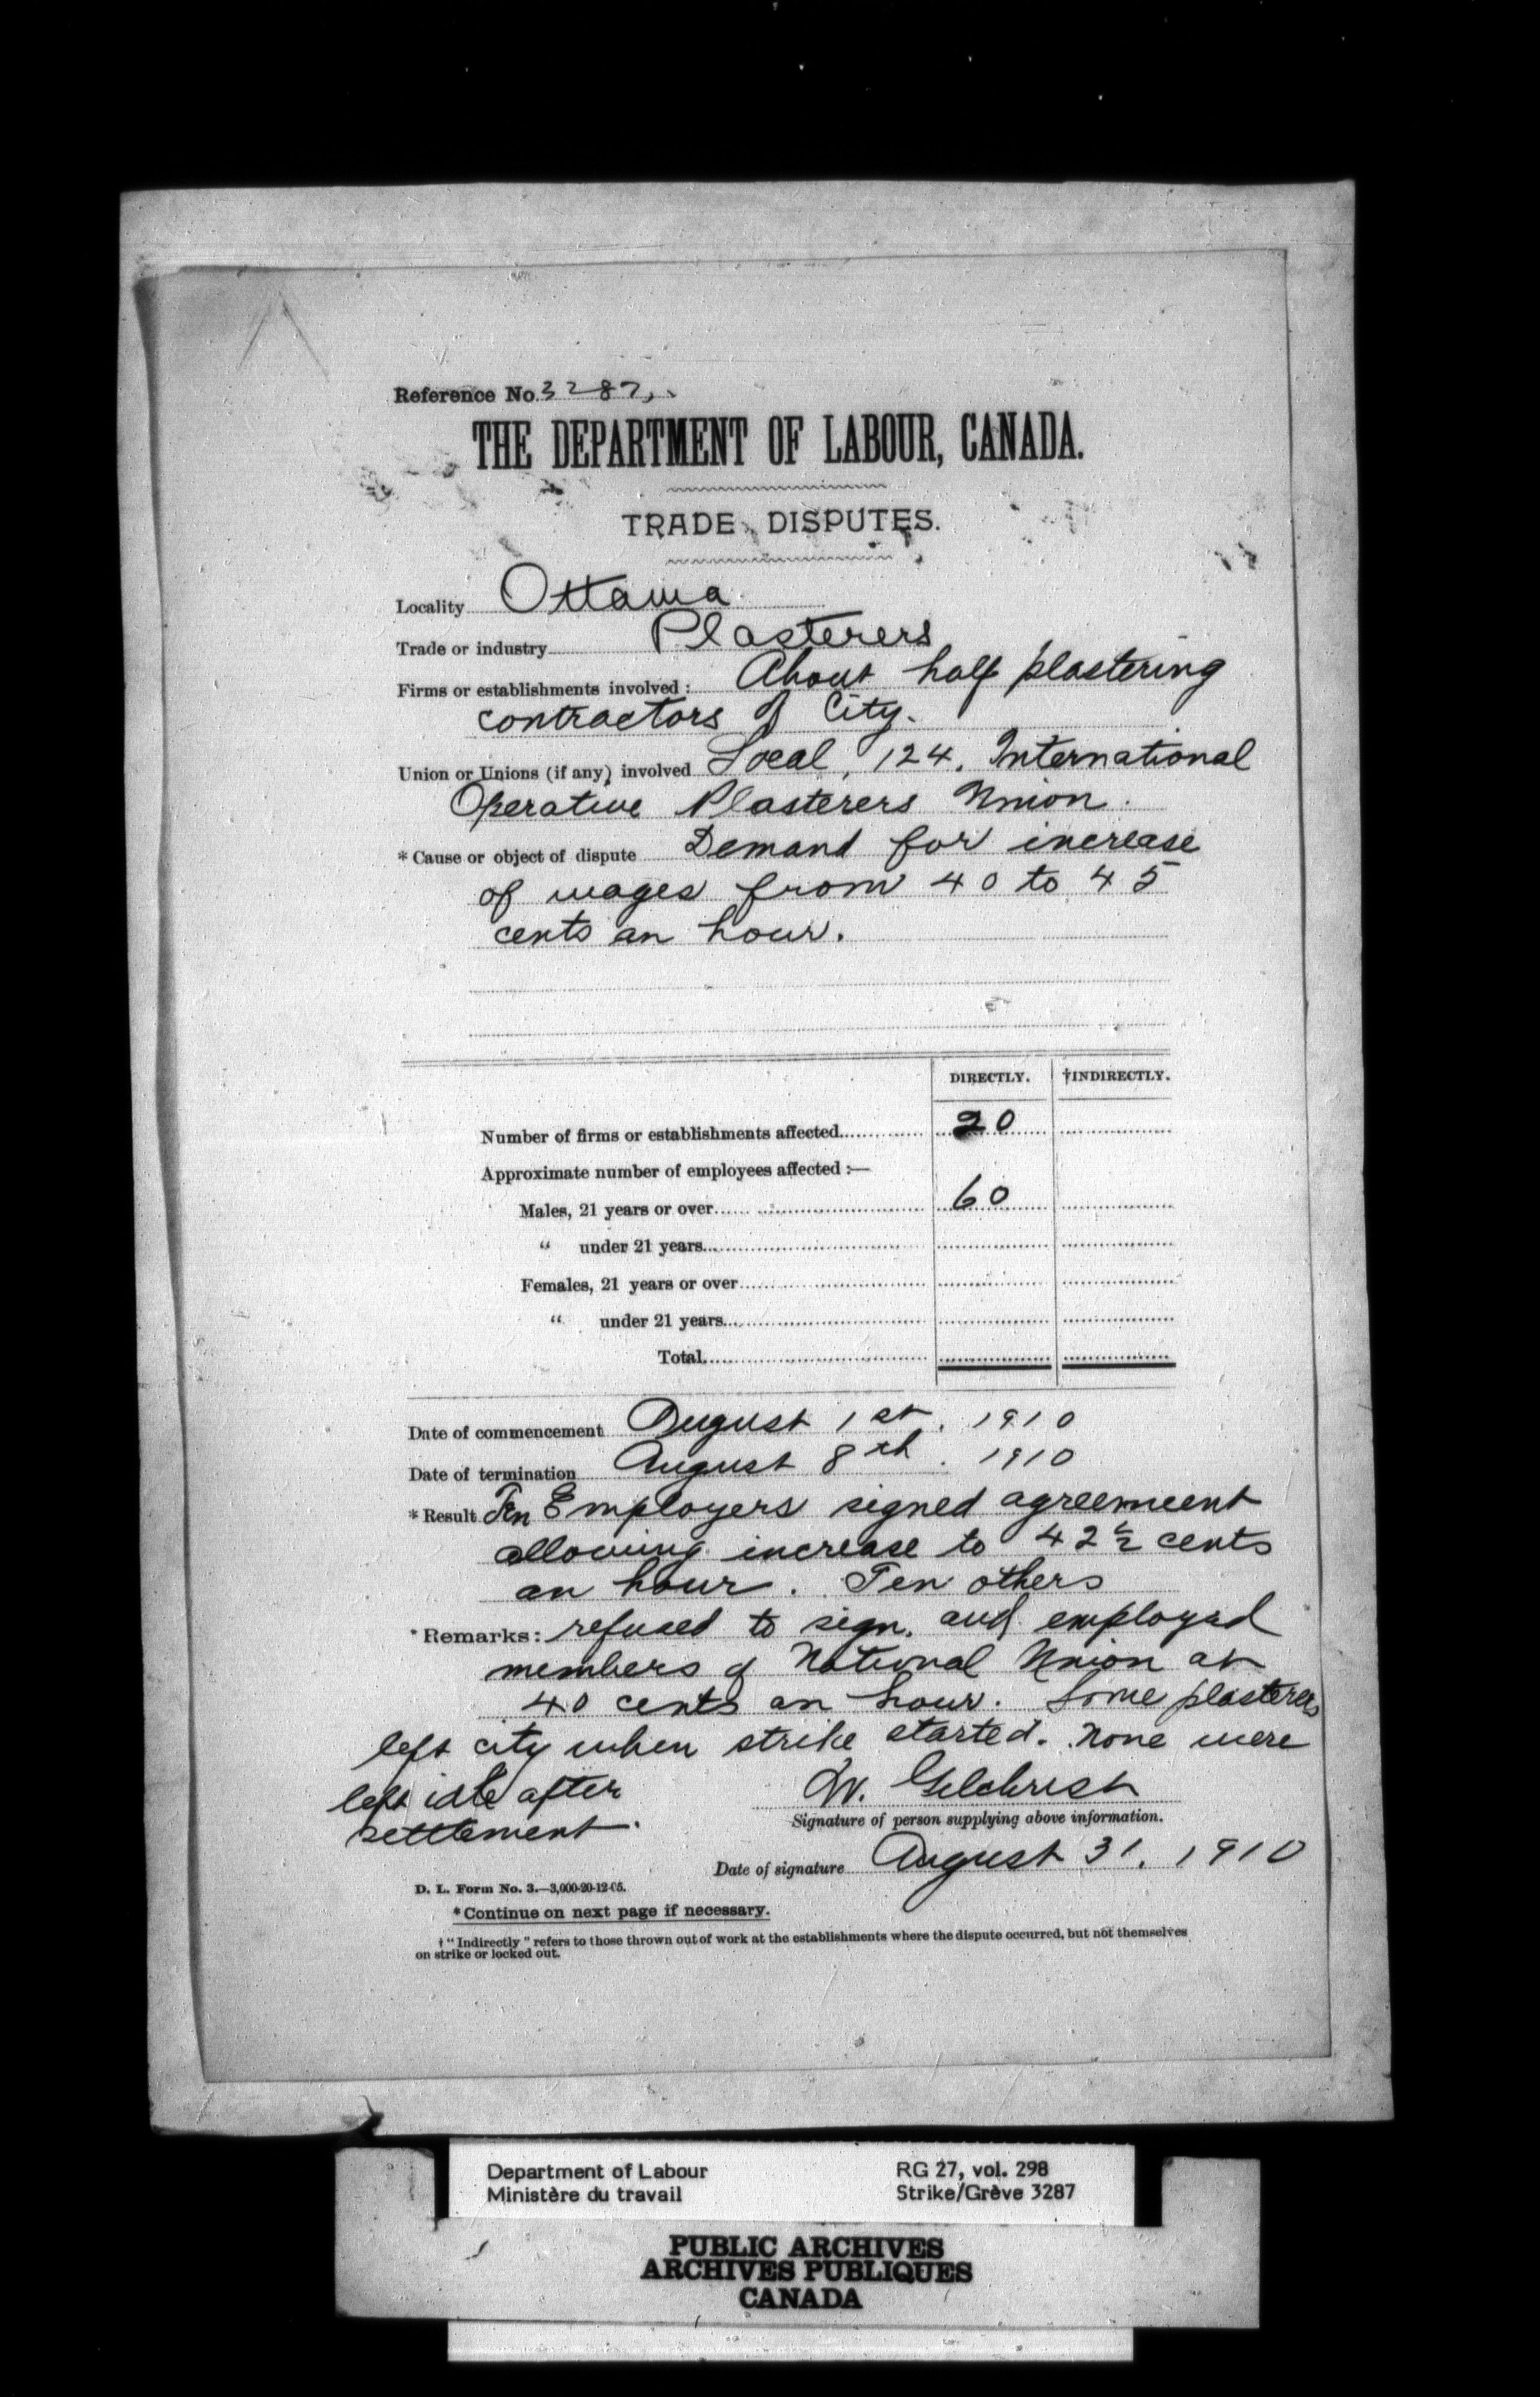 Reference No. 3287
THE DEPARTMENT OF LABOUR, CANADA.
TRADE DISPUTES.
Locality Ottawa
Trade or industry Plasterers
Firms or establishments involved : About half plastering
contractors of City.
Union or Unions (if any) involved Local, 124, International
Operative Plasterers Union.
* Cause or object of dispute Demand for increase
of wages from 40 to 45
cents an hour.
DIRECTLY. †INDIRECTLY.
Number of firms or establishments affected 20
Approximate number of employees affected :—
Males, 21 years or over 60
“ under 21 years
Females, 21 years or over
“ under 21 years
Total
Date of commencement August 1st. 1910
Date of termination August 8th. 1910
* Result Ten Employers signed agreement
allowing increase to 42½ cents
an hour. Ten others
* Remarks: refused to sign, and employed
members of National Union at
40 cents an hour. Some plasterers
left city when strike started. None were
left idle after
settlement.
W. Gilchrist
Signature of person supplying above information.
Date of signature August 31, 1910
D. L. Form No. 3.—3,000-20-12-05.
* Continue on next page if necessary.
† “Indirectly” refers to those thrown out of work at the establishments where the dispute occurred, but not themselves
on strike or locked out.
Department of Labour RG 27, vol. 298
Ministère du travail Strike/Grève 3287
PUBLIC ARCHIVES
ARCHIVES PUBLIQUES
CANADA